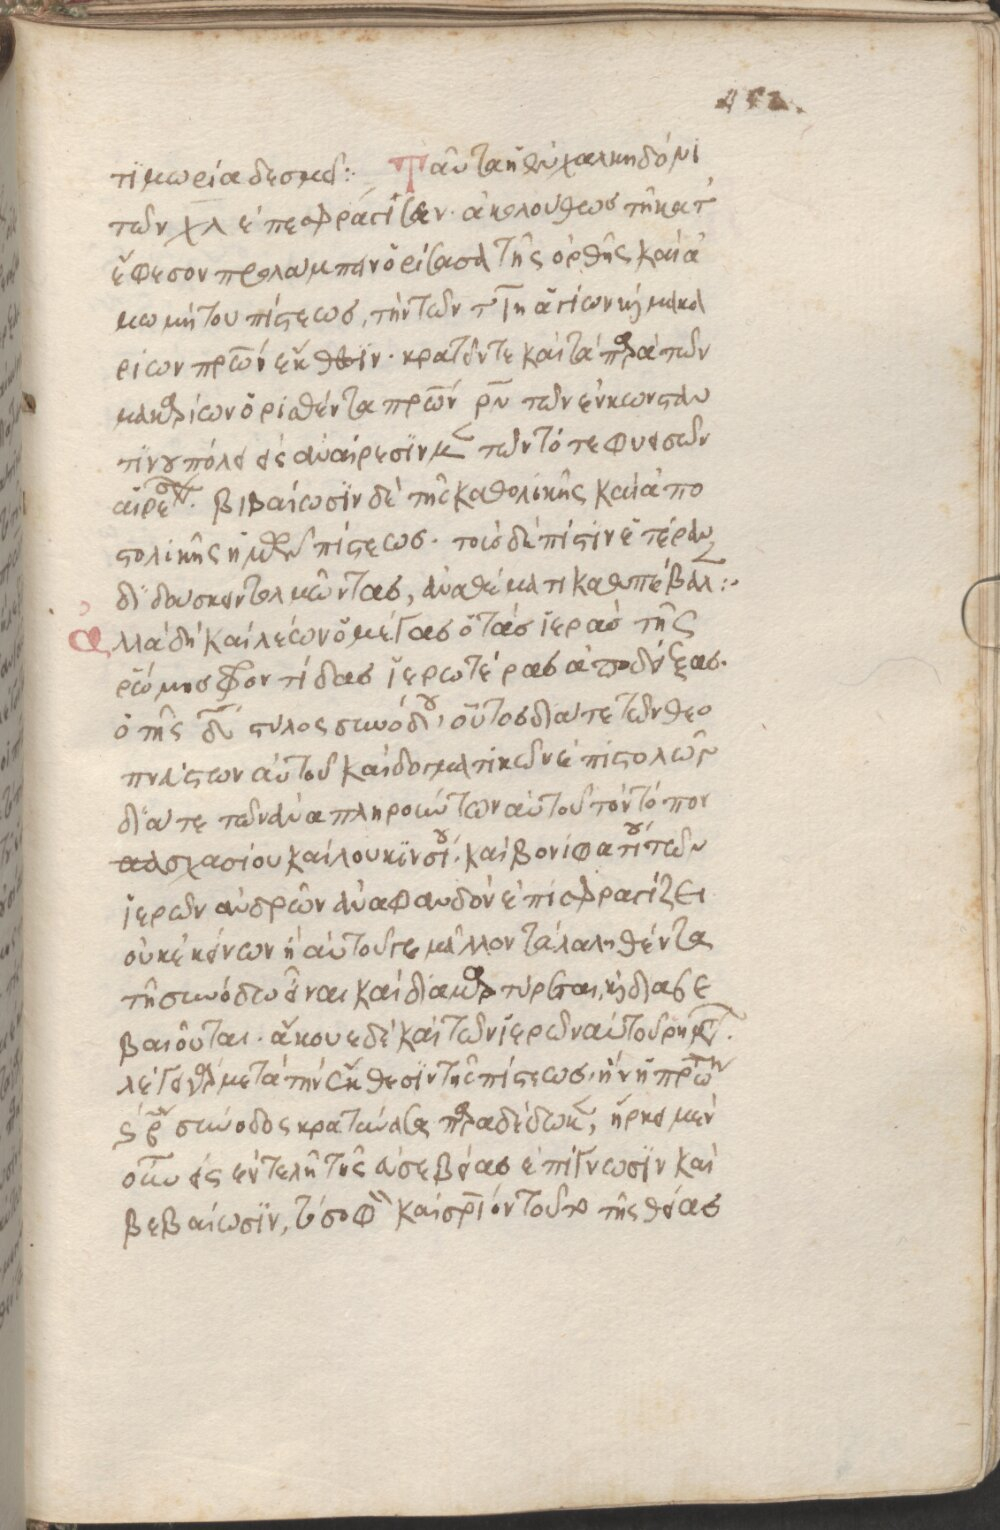 τιμωρία δεσμεῖ :· Ταῦτα ἡ ἐν χαλκηδόνι
τῶν χλ ἐπεσφράγισεν· ἀκολούθως τῇ κατ'
ἔφεσον προλαμπεν ὁρίσασα τῆς ὀρθῆς καὶ ἀ
μωμήτου πίστεως, τὴν τῶν τιη ἁγίων κὶ μακα
ρίων πρων ἔκθεσιν· κρατεῖν τε καὶ τὰ παρὰ τῶν
μακαρίων ὁρισθέντα πρων ρν τῶν ἐν κωνσταν
τίνου πόλει εἰς ἀναίρεσιν μὲν τῶν τότε φυεισῶν
αἱρέσεων· βιβαίωσιν δὲ τῆς καθολικῆς καὶ ἀπο
στολικῆς ἡμῶν πίστεως· τοὺς δὲ πίστιν ἑτέραν
διδάσκειν τολμῶντας, ἀναθέματι καθυπέβαλεν :·
ἀλλὰ δὴ καὶ λέων ὁ μέγας ὁ τὰς ἱερὰς τῆς
ῥώμης φροντίδας ἱερωτέρας ἀποδείξας·
ὁ τῆς δ' στύλος συνόδου· οὗτος διά τε τῶν θεο
πνεύστων αὐτοῦ καὶ δογματικῶν ἐπιστολῶν
διά τε τῶν ἀναπληρούντων αὐτοῦ τὸν τόπον
πασχασίου καὶ λουκινσίου· καὶ βονιφατίου τῶν
ἱερῶν ἀνδρῶν ἀναφανδὸν ἐπισφραγίζει
οὐκ ἐκείνων ἢ αὐτοῦ γε μᾶλλον τὰ λαληθέντα
τῇ συνόδω εἶναι καὶ διαμαρτύρεται, κὶ διαβε
βαιοῦται· ἄκουε δὲ καὶ τῶν ἱερῶν αὐτοῦ ῥημάτων·
λέγει γὰρ μετὰ τὴν ἔκθεσιν τῆς πίστεως· ἣν ἡ πρώτη
σύνοδος κρατύνασα παραδέδωκεν, ἤρκει μὲν
οὖν εἰς ἐντελῆ τῆς εὐσεβείας ἐπίγνωσιν καὶ
βεβαίωσιν, τὸ σοφὸν καὶ σριον τοῦτο τῆς θείας